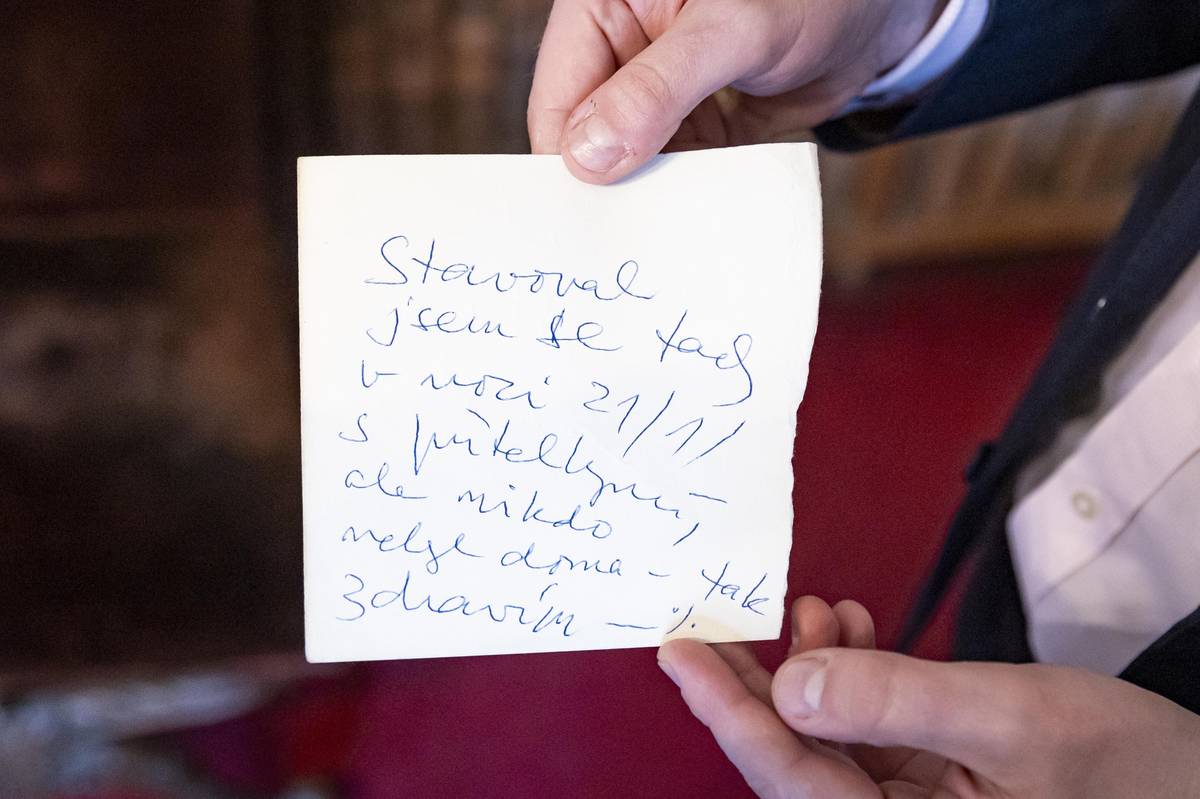 Stavoval
jsem se tady
v noci 21/1/
s přítelkyní,
ale nikdo
nebyl doma – tak
zdravím – ./.